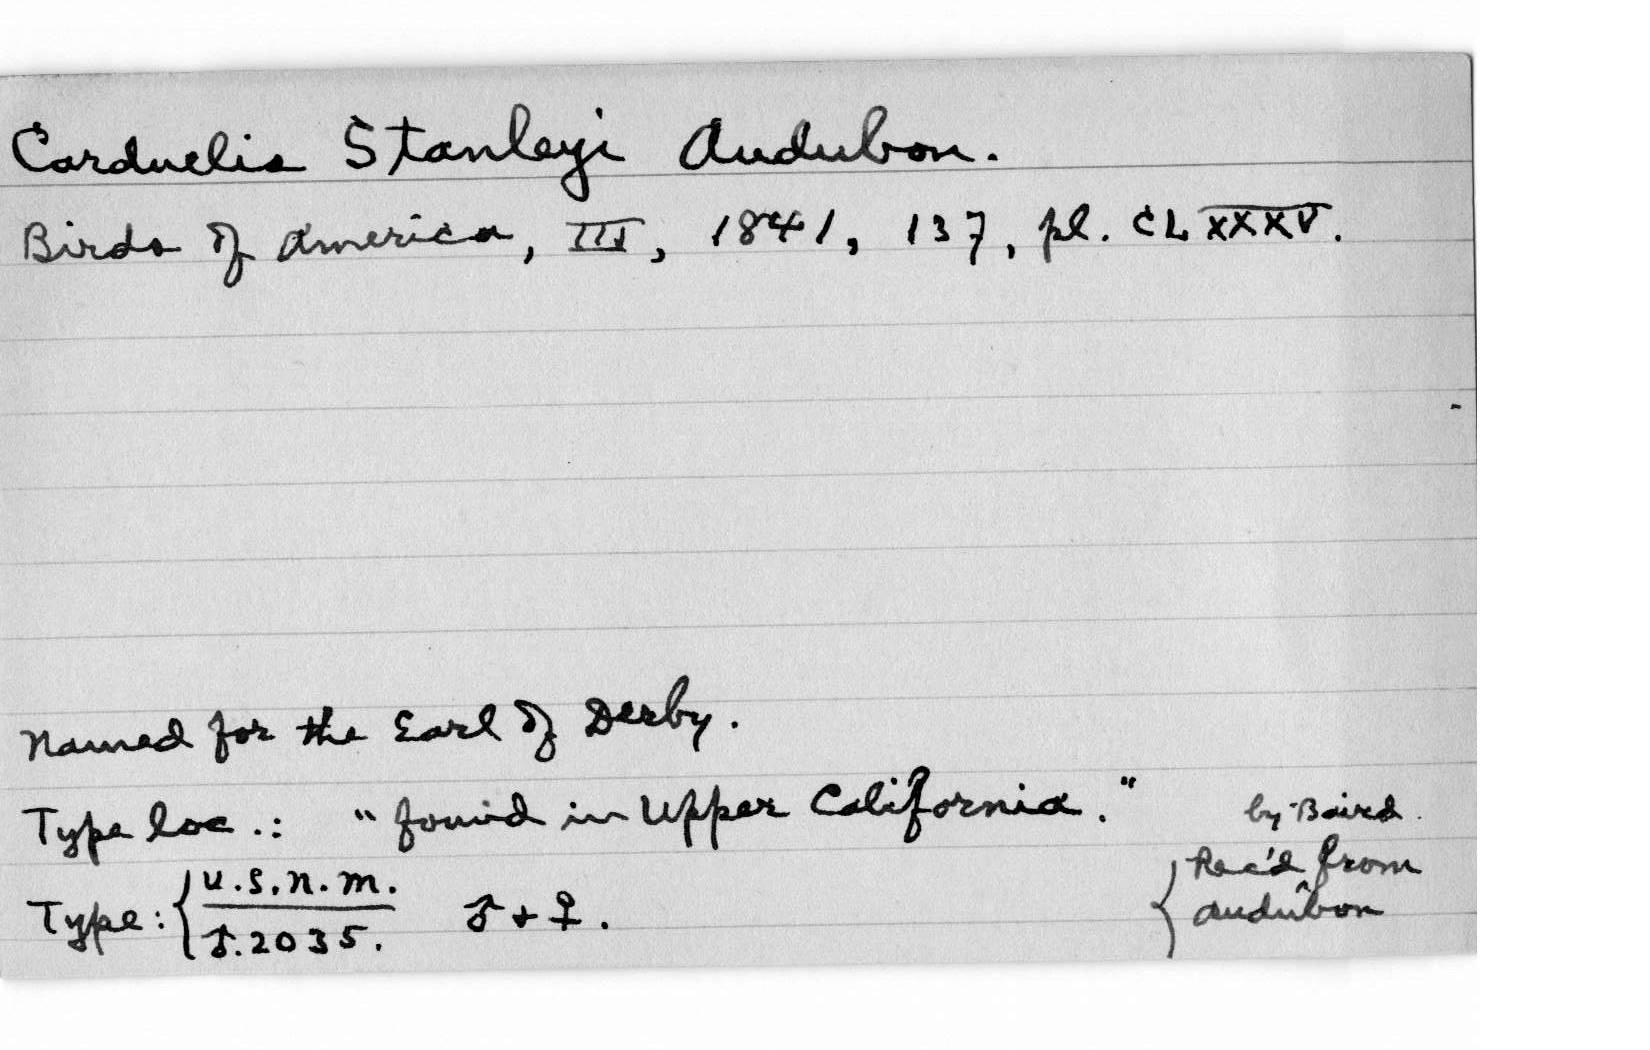 Carduelis Stanleyi Audubon.
Birds of America, III, 1841, 137, pl. CLXXXV.
Named for the Earl of Derby.
Type loc.: "found in Upper California."
by Baird.
Type: { U.S.N.M. ♂ + ♀. { Rec'd from
♂.2035. Audubon